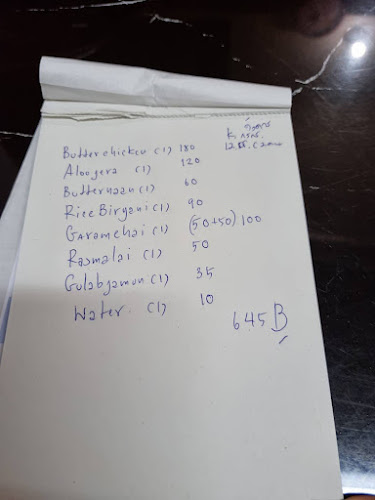 Butter chicken (1) 180
Aloojera (1) 120
Butternaan (1) 60
Rice Biryoni (1) 90
Garamchai (1) (50+50) 100
Rasmalai (1) 50
Gulabjamun (1) 35
Water. (1) 10
645 B